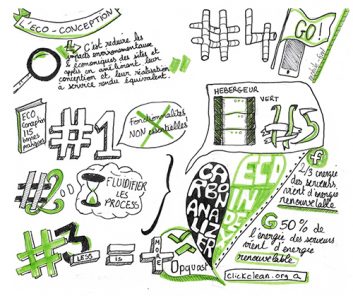 L'ECO-CONCEPTION
C'est réduire les
impacts environnementaux
& économiques des sites et
applis en améliorant leur
conception et leur réalisation
à service rendu équivalent.
#4
GO!
ECO
Conception
115
bonnes
pratiques
#1
Fonctionnalités
NON essentielles!
HEBERGEUR
VERT
#5
#2
FLUIDIFIER
LES
PROCESS
CARBONANALIZER
ECOINDEX
f
2/3 énergie
des serveurs
vient d'énergies
renouvelable
#3
LESS
is
MORE
Opquast
G 50% de
l'énergie des serveurs
vient d'énergie
renouvelable
clickclean.org